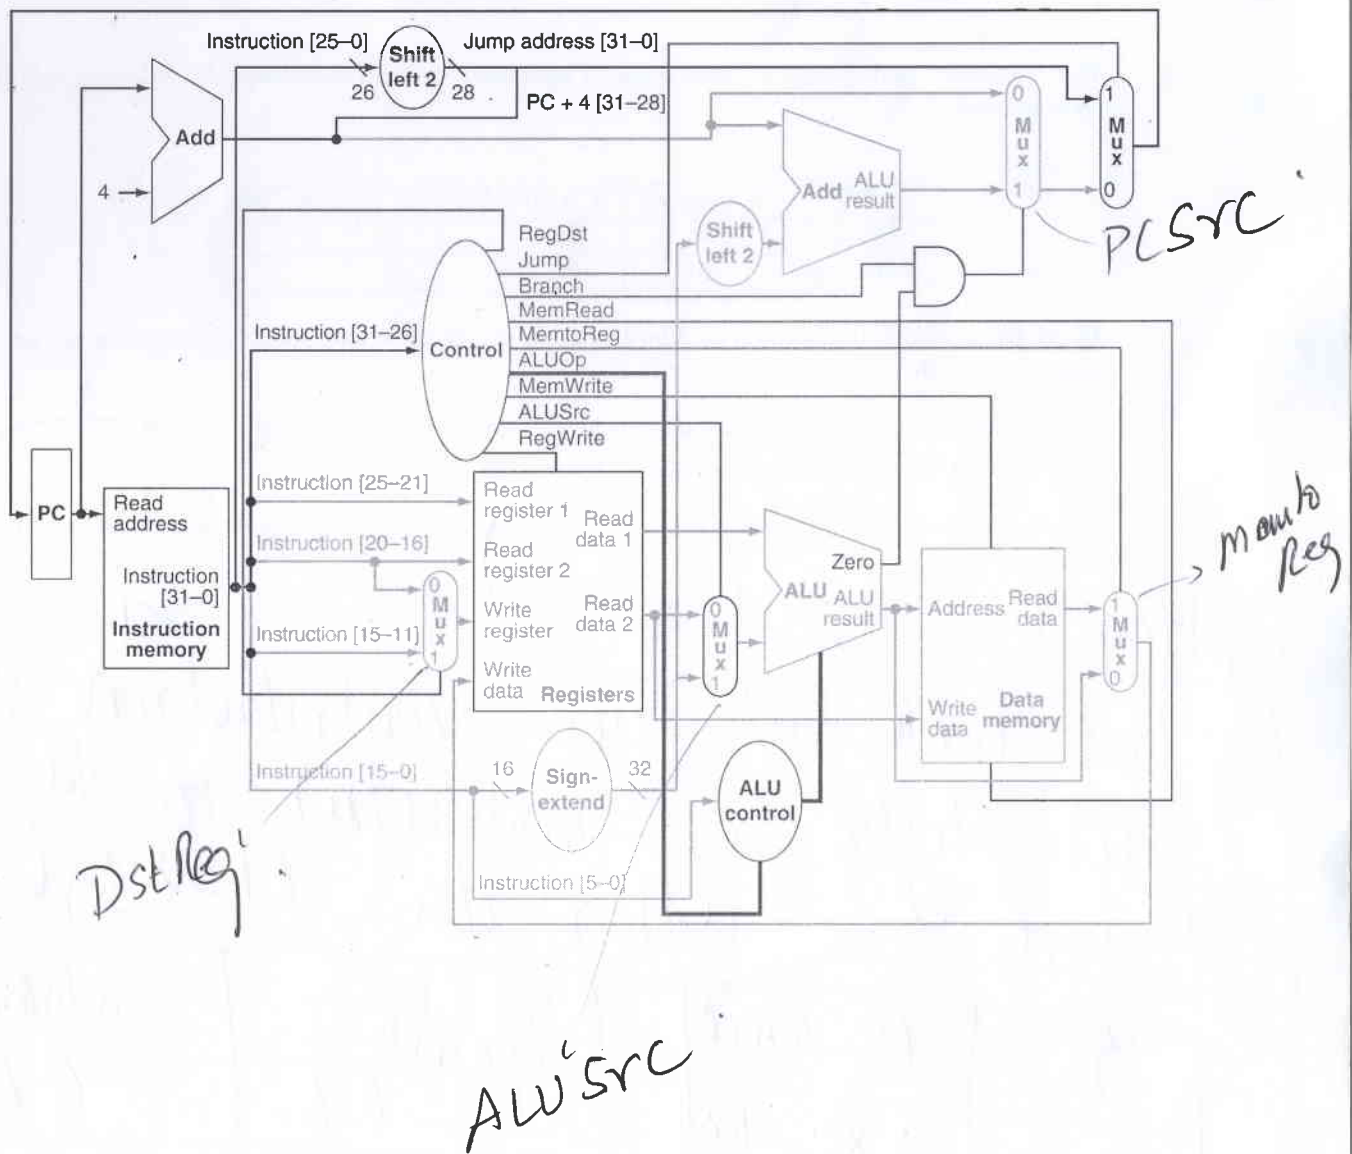 Instruction [25–0]
Shift
left 2
Jump address [31–0]
26
28
PC + 4 [31–28]
Add
4
0
M
u
x
1
1
M
u
x
0
Add
ALU
result
Shift
left 2
PCSrC
RegDst
Jump
Branch
MemRead
MemtoReg
ALUOp
MemWrite
ALUSrc
RegWrite
Instruction [31–26]
Control
PC
Read
address
Instruction
[31–0]
Instruction
memory
Instruction [25–21]
Instruction [20–16]
Instruction [15–11]
0
M
u
x
1
Read
register 1
Read
register 2
Write
register
Write
data
Read
data 1
Read
data 2
Registers
0
M
u
x
1
Zero
ALU
ALU
result
Address
Read
data
Write
data
Data
memory
1
M
u
x
0
Memto
Reg
Instruction [15–0]
16
Sign-
extend
32
ALU
control
Instruction [5–0]
DstReg
ALUSrC